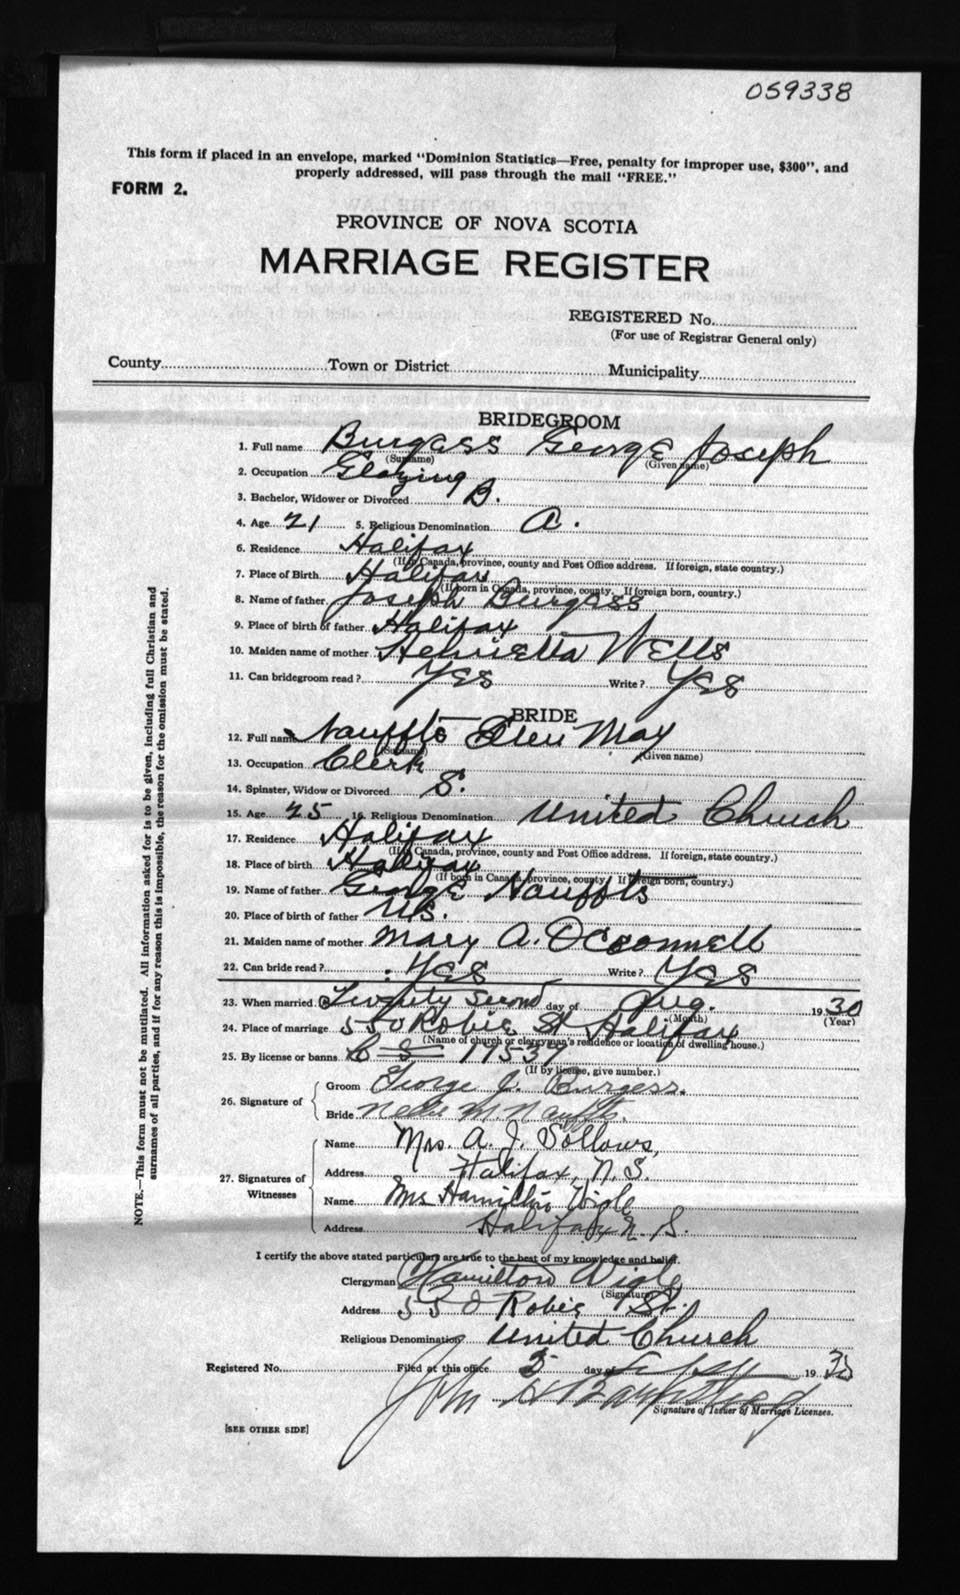 059338
This form if placed in an envelope, marked "Dominion Statistics—Free, penalty for improper use, $300", and
properly addressed, will pass through the mail "FREE."
FORM 2.
PROVINCE OF NOVA SCOTIA
MARRIAGE REGISTER
REGISTERED No.
(For use of Registrar General only)
County Town or District Municipality
BRIDEGROOM
1. Full name Burgass George Joseph
(Surname) (Given name)
2. Occupation Glazing
3. Bachelor, Widower or Divorced B.
4. Age 21 5. Religious Denomination A.
6. Residence Halifax
(If in Canada, province, county and Post Office address. If foreign, state country.)
7. Place of Birth Halifax
(If born in Canada, province, county. If foreign born, country.)
8. Name of father Joseph Burgass
9. Place of birth of father Halifax
10. Maiden name of mother Henrietta Wells
11. Can bridegroom read? Yes Write? Yes
BRIDE
12. Full name Nauffts Ellen May
(Surname) (Given name)
13. Occupation Clerk
14. Spinster, Widow or Divorced S.
15. Age 25 16. Religious Denomination United Church
17. Residence Halifax
(If in Canada, province, county and Post Office address. If foreign, state country.)
18. Place of birth Halifax
(If born in Canada, province, county. If foreign born, country.)
19. Name of father George Nauffts
20. Place of birth of father
21. Maiden name of mother Mary A. O'Connell
22. Can bride read? Yes Write? Yes
23. When married Twenty Second day of Aug. 1930
(Month) (Year)
24. Place of marriage 550 Robie St Halifax
(Name of church or clergyman's residence or location of dwelling house.)
25. By license or banns 17537
(If by license, give number.)
26. Signature of
Groom George J. Burgess.
Bride Nellie M. Nauffts.
27. Signatures of Witnesses
Name Mrs. A. J. Sollows,
Address Halifax, N. S.
Name Mrs Hamilton Wigle
Address Halifax N. S.
I certify the above stated particulars are true to the best of my knowledge and belief.
Clergyman Hamilton Wigle
(Signature)
Address 550 Robie St.
Religious Denomination United Church
Registered No. Filed at this office day of 19
John H
Signature of Issuer of Marriage Licenses.
[SEE OTHER SIDE]
NOTE.—This form must not be mutilated. All information asked for is to be given, including full Christian and
surnames of all parties, and if for any reason this is impossible, the reason for the omission must be stated.